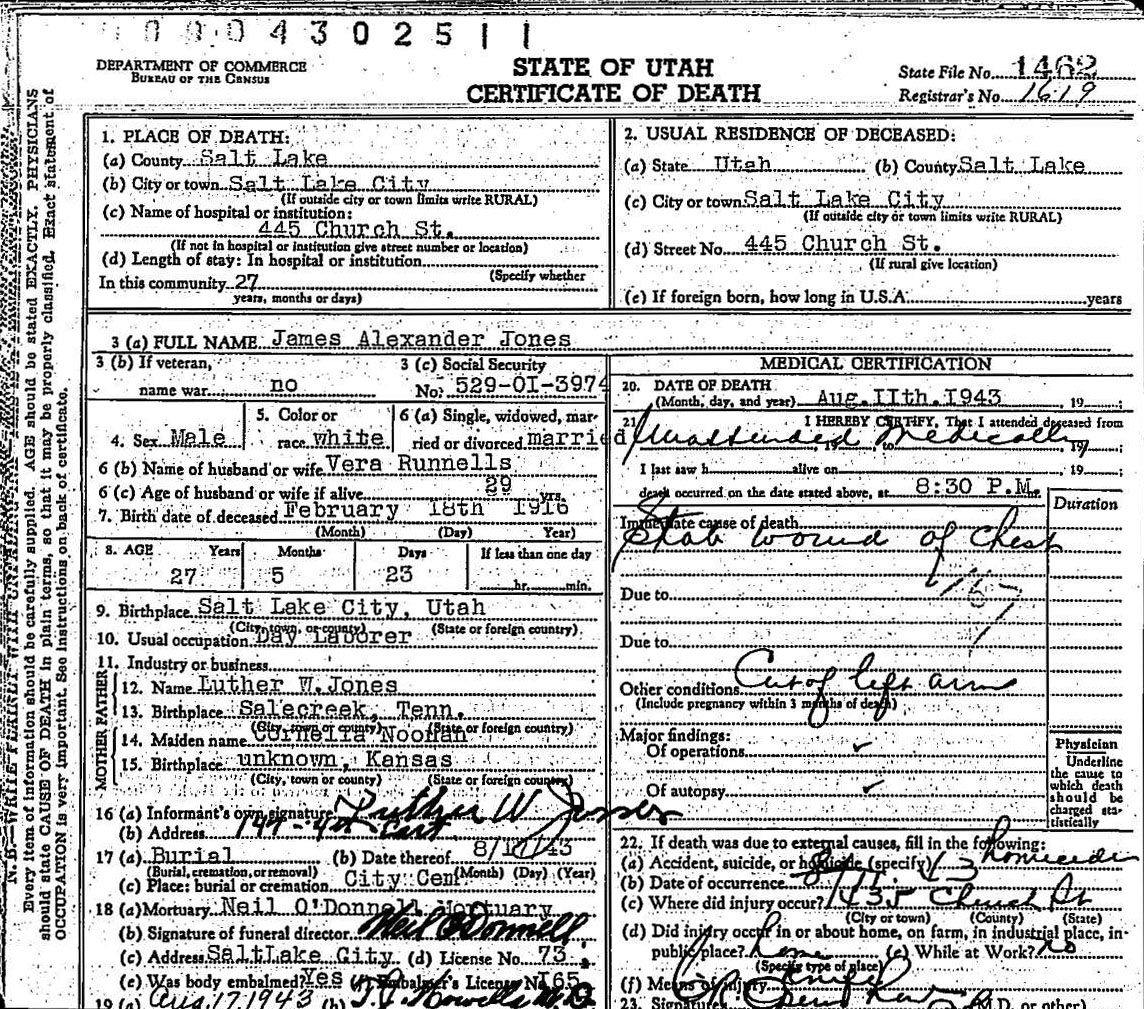 0 0 0 4 3 0 2 5 1 1
DEPARTMENT OF COMMERCE
BUREAU OF THE CENSUS
STATE OF UTAH
CERTIFICATE OF DEATH
State File No. 1462
Registrar's No. 1619
N. B.—WRITE PLAINLY WITH UNFADING INK
Every item of information should be carefully supplied. AGE should be stated EXACTLY. PHYSICIANS
should state CAUSE OF DEATH in plain terms, so that it may be properly classified. Exact statement of
OCCUPATION is very important. See instructions on back of certificate.
1. PLACE OF DEATH:
(a) County Salt Lake
(b) City or town Salt Lake City
(If outside city or town limits write RURAL)
(c) Name of hospital or institution:
445 Church St.
(If not in hospital or institution give street number or location)
(d) Length of stay: In hospital or institution
(Specify whether
In this community 27
years, months or days)
2. USUAL RESIDENCE OF DECEASED:
(a) State Utah (b) County Salt Lake
(c) City or town Salt Lake City
(If outside city or town limits write RURAL)
(d) Street No. 445 Church St.
(If rural give location)
(e) If foreign born, how long in U.S.A. years
3 (a) FULL NAME James Alexander Jones
3 (b) If veteran, 3 (c) Social Security
name war no No. 529-01-3974
4. Sex Male 5. Color or race white 6 (a) Single, widowed, married or divorced married
6 (b) Name of husband or wife Vera Runnells
6 (c) Age of husband or wife if alive 29 yrs.
7. Birth date of deceased February 18th 1916
(Month) (Day) Year)
8. AGE Years Months Days If less than one day
27 5 23 hr. min.
9. Birthplace Salt Lake City, Utah
(City, town, or county) (State or foreign country)
10. Usual occupation Day Laborer
11. Industry or business
FATHER
12. Name Luther W. Jones
13. Birthplace Salecreek, Tenn.
(City, town or county) (State or foreign country)
MOTHER
14. Maiden name Cornelia Noonan
15. Birthplace unknown, Kansas
(City, town or county) (State or foreign country)
16 (a) Informant's own signature Luther W Jones
(b) Address 147 - 4th East
17 (a) Burial (b) Date thereof 8/17/43
(Burial, cremation, or removal) (Month) (Day) (Year)
(c) Place: burial or cremation City Cem
18 (a) Mortuary Neil O'Donnell Mortuary
(b) Signature of funeral director Neil O'Donnell
(c) Address Salt Lake City (d) License No. 73
(e) Was body embalmed? Yes (f) Embalmer's License No. 165
19 (a) Aug. 17, 1943 (b) T. J. Howells M.D.
MEDICAL CERTIFICATION
20. DATE OF DEATH
(Month, day, and year) Aug. 11th. 1943 19
21 I HEREBY CERTIFY, That I attended deceased from
Unattended Medically to 19
I last saw h alive on 19
death occurred on the date stated above, at 8:30 P.M.
Duration
Immediate cause of death
Stab wound of chest
Due to
Due to
Other conditions Cut of left arm
(Include pregnancy within 3 months of death)
Major findings:
Of operations
Of autopsy
Physician
Underline
the cause to
which death
should be
charged sta-
tistically
22. If death was due to external causes, fill in the following:
(a) Accident, suicide, or homicide (specify) homicide
(b) Date of occurrence 8/11/43
(c) Where did injury occur? 435 Church St
(City or town) (County) (State)
(d) Did injury occur in or about home, on farm, in industrial place, in
public place? home (e) While at Work? no
(Specify type of place)
(f) Means of injury Knife
23. Signature (M.D. or other)